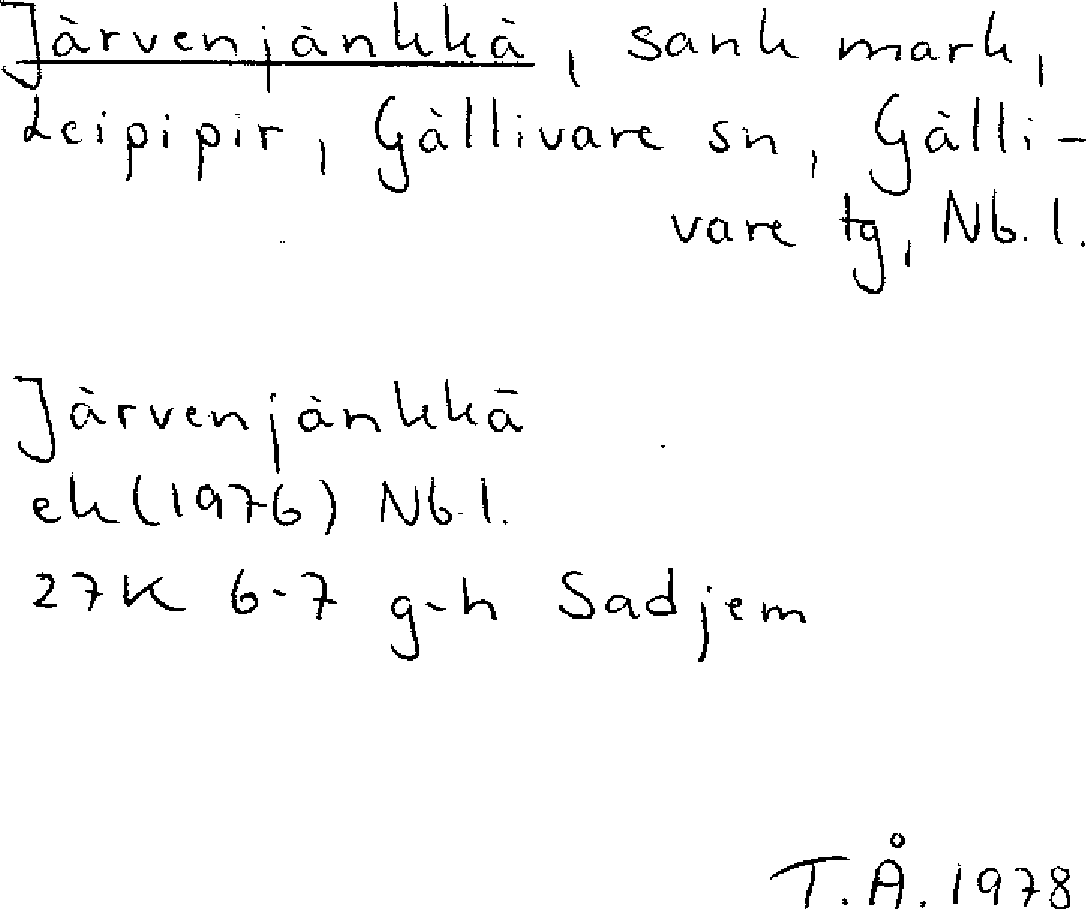 Järvenjänkkä, sank mark,
Leipipir, Gällivare sn, Gälli-
vare tg, Nb.l.
Järvenjänkkä
ek (1976) Nb.l.
27K 6-7 g-h Sadjem
T.Å. 1978